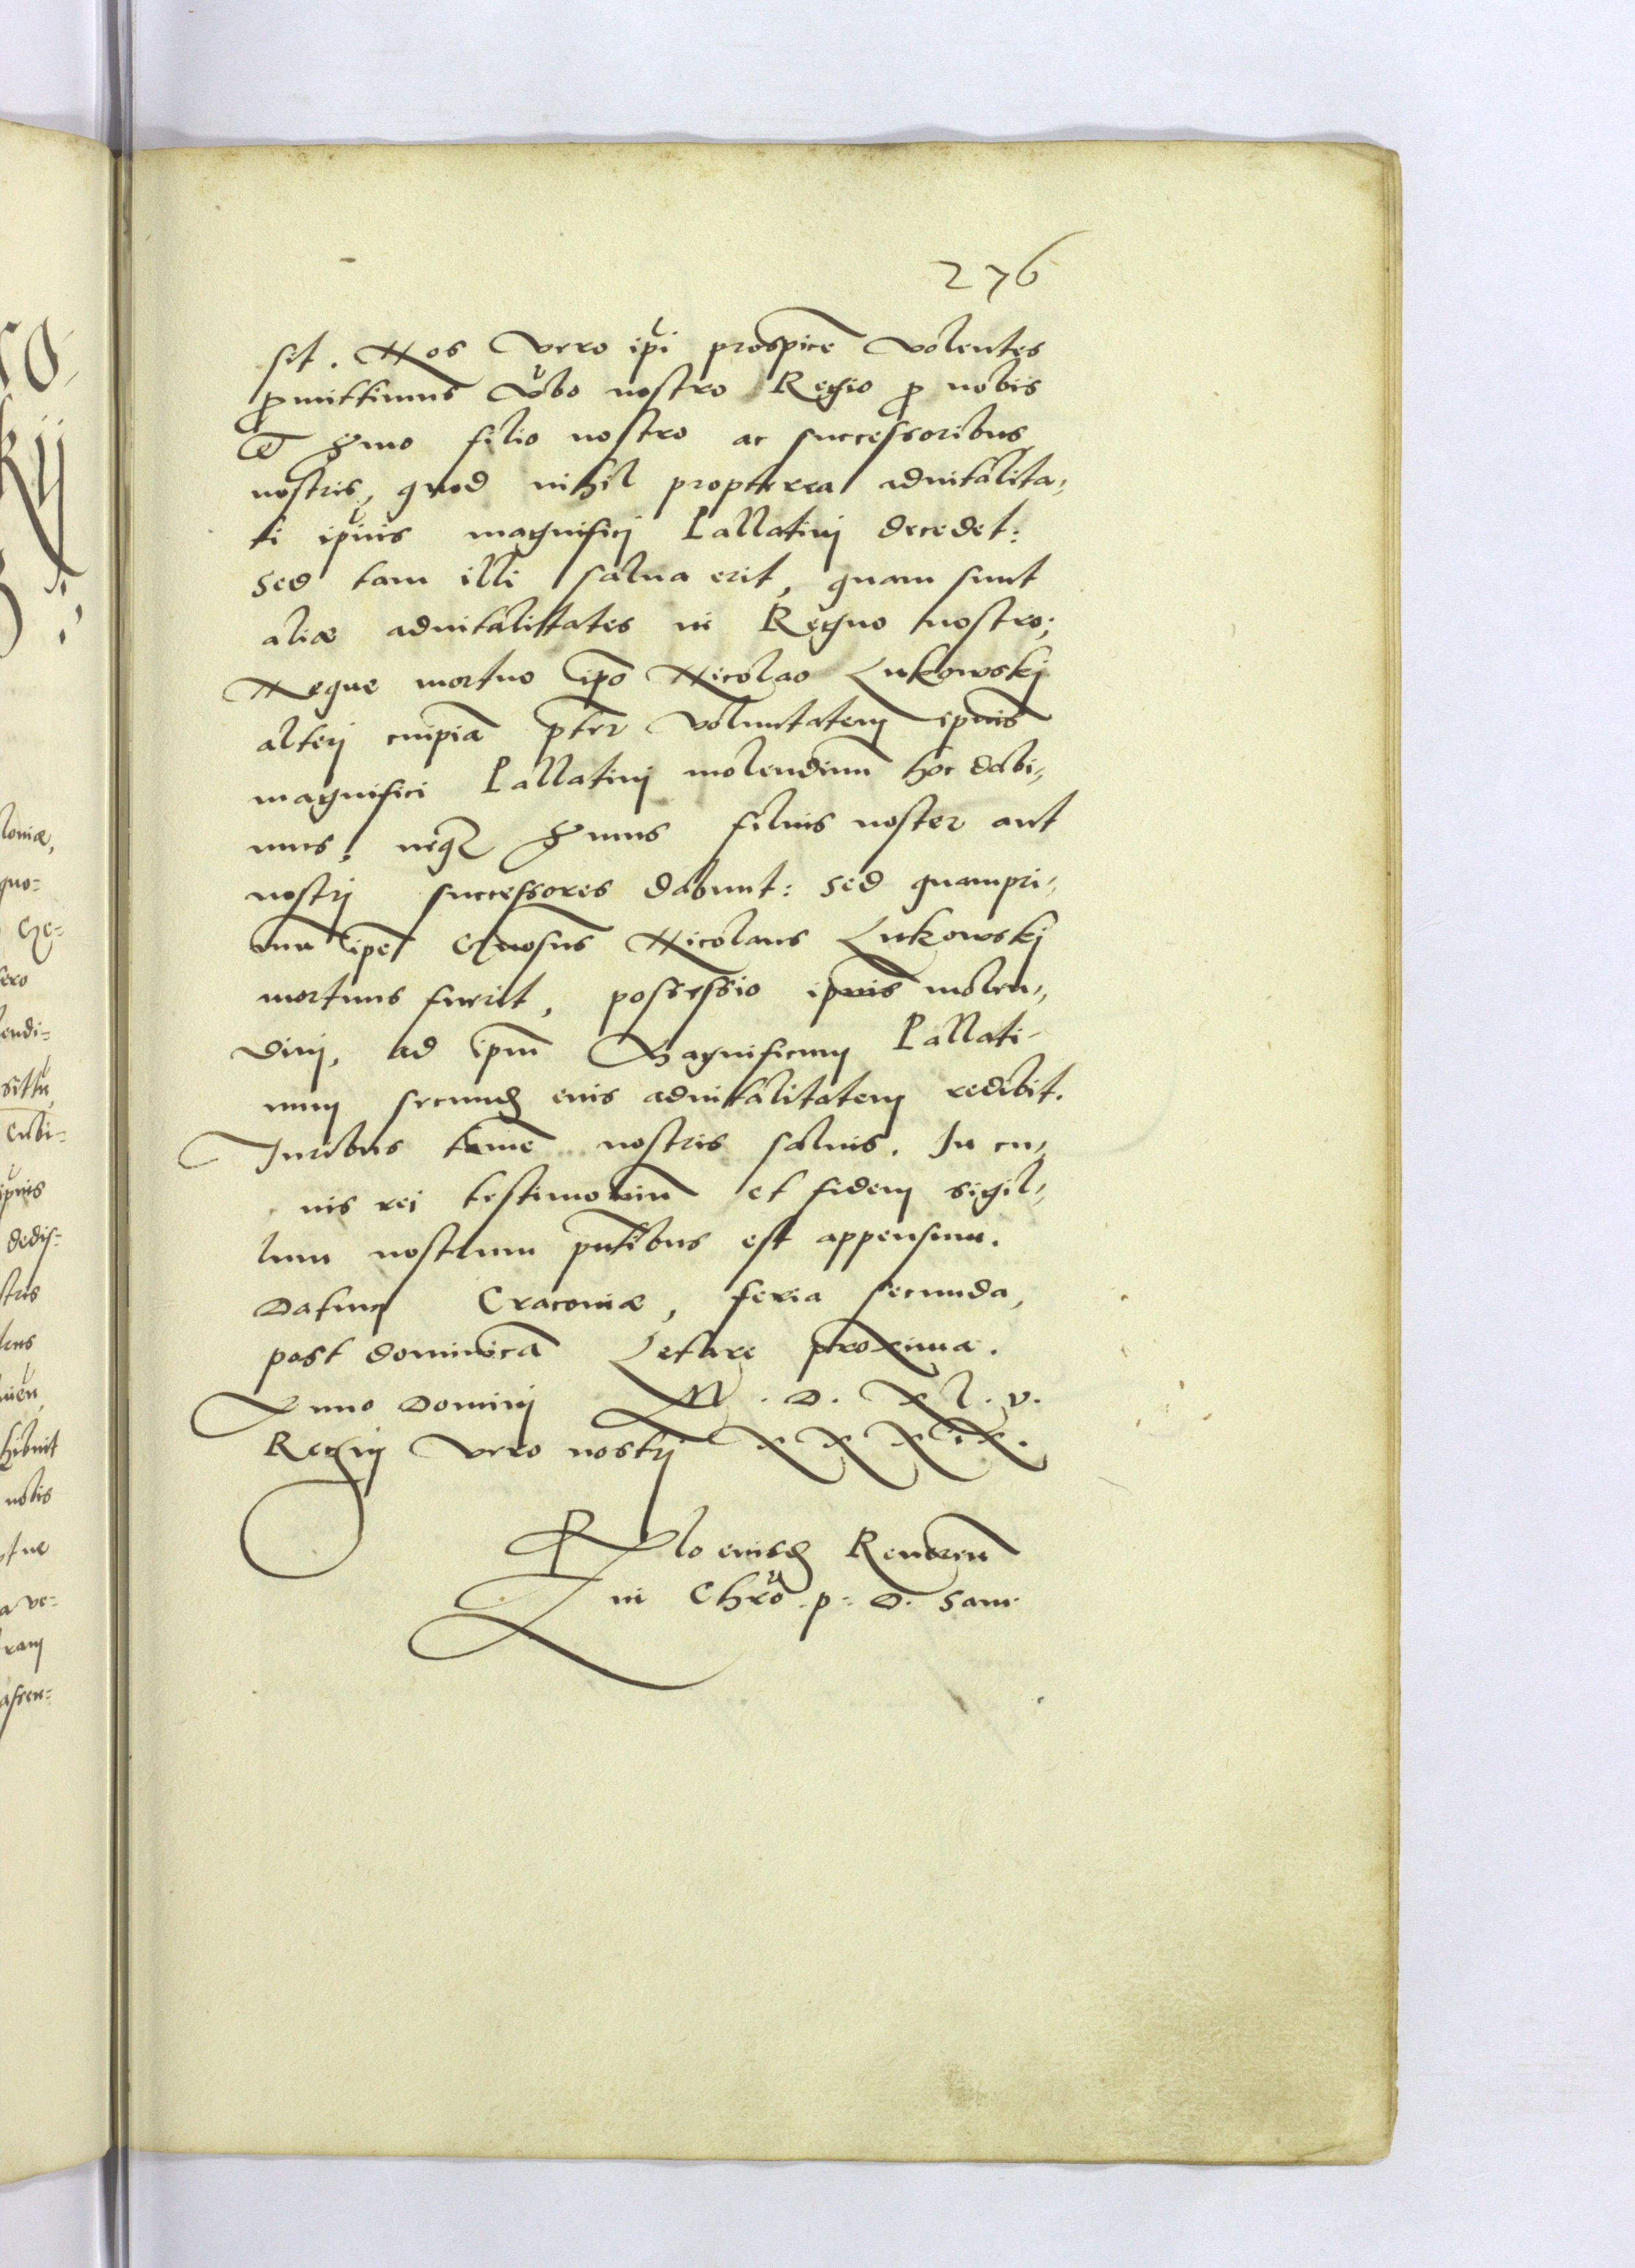 276
sit. Nos vero ipi prospicē volentes
ꝓmittimus vbo nostro Regio ꝓ nobis
et Sermo filio nostro ac successoribus
nostris, quod nihil propterea aduitalita-
ti ipius magnificj Pallatinj decedet:
sed tam illi salua erit, quam sunt
aliæ aduitalittates in Regno nostro;
Neque mortuo ipō Nicolao Lukowskj
alterj cuipiā p̄ter voluntatem ipius
magnifici Pallatinj molendinū hoc dabi-
mus, neqꝫ Sermus filius noster aut
nostrj successores dabunt: sed quampri-
mū ipē Gn̄osus Nicolaus Lukowskj
mortuus fuerit, possessio ipius molen-
dinj, ad ipm̄ Magnificum Pallati-
num secundū eius aduitalitatem redibit.
Juribus tamē nostris saluis. In cu-
ius rei testimoniū et fidem sigil-
lum nostrum pn̄tibus est appensum.
Datum Cracoviæ, feria secunda,
post dominicā Letare proxima.
Anno Dominj M. D. XL. V.
Regnj vero nostrj XXXIX.
Rlo eiusdē Reueren̄
in Chrō. p: D. Sam.
ro-
kij
loniæ,
quo=
Ge=
sero
lendi=
sittū
Cubi=
ipius
dedis=
stris
hibuit
nobis
a ve=
ram